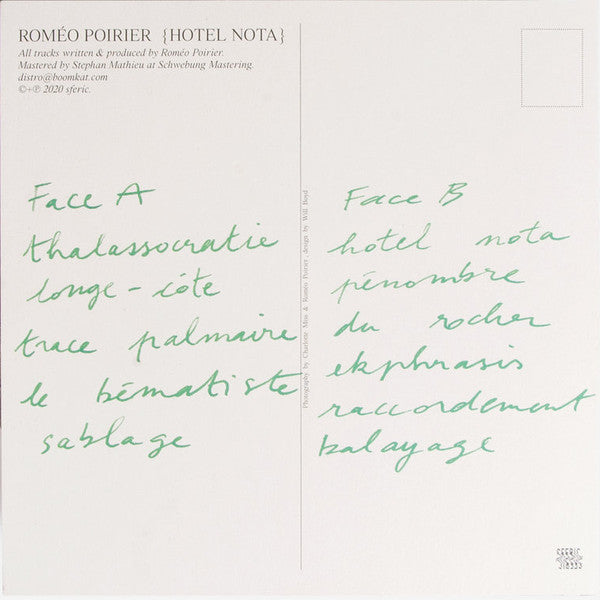 ROMÉO POIRIER {HOTEL NOTA}
All tracks written & produced by Roméo Poirier.
Mastered by Stephan Mathieu at Schwebung Mastering.
distro@boomkat.com
©+℗ 2020 sferic.
Face A
thalassocratie
longe-côte
trace palmaire
le bématiste
sablage
Photography by Charlotte Mias & Roméo Poirier design by Will Boyd
Face B
hotel nota
pénombre
du rocher
ekphrasis
raccordement
balayage
SFERIC